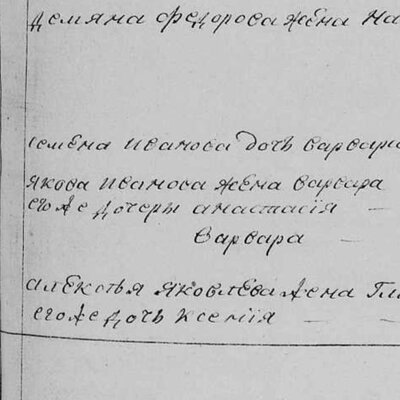 Демяна федорова жена На
семена Иванова дочь варвара
якова Иванова жена варвара
егоже дочеры анастасія
варвара
алексѣя яковлева жена Гл
егоже дочь ксенія